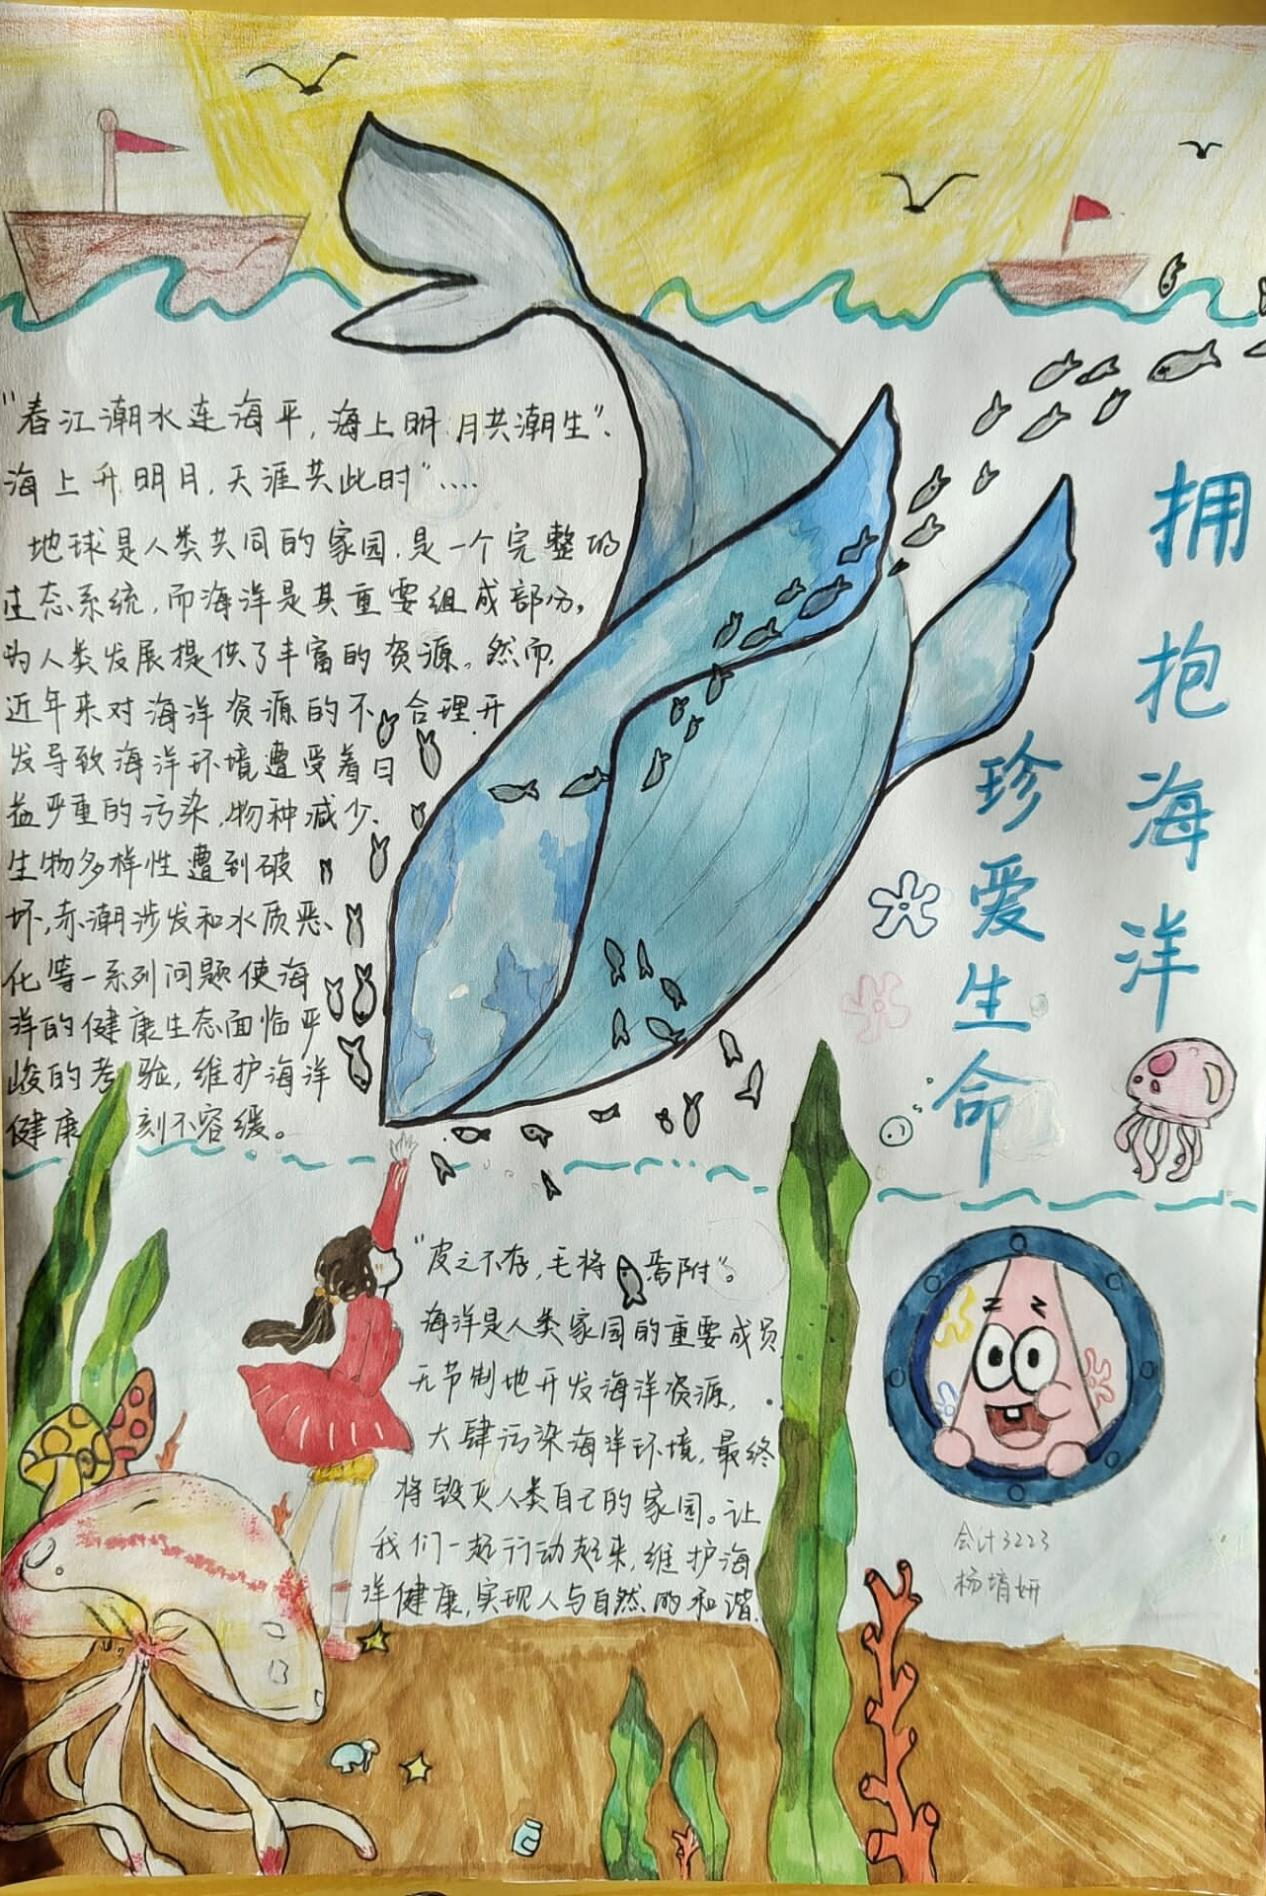 拥抱海洋
珍爱生命
"春江潮水连海平,海上明月共潮生"、
海上升明月,天涯共此时"....
地球是人类共同的家园,是一个完整的
生态系统,而海洋是其重要组成部分,
为人类发展提供了丰富的资源。然而,
近年来对海洋资源的不合理开
发导致海洋环境遭受着日
益严重的污染,物种减少、
生物多样性遭到破
坏,赤潮涉发和水质恶、
化等一系列问题使海
洋的健康生态面临严
峻的考验,维护海洋
健康刻不容缓。
"皮之不存,毛将焉附"。
海洋是人类家园的重要成员
无节制地开发海洋资源,
大肆污染海洋环境,最终
将毁灭人类自己的家园。让
我们一起行动起来,维护海
洋健康,实现人与自然的和谐.
会计3223
杨堉妍